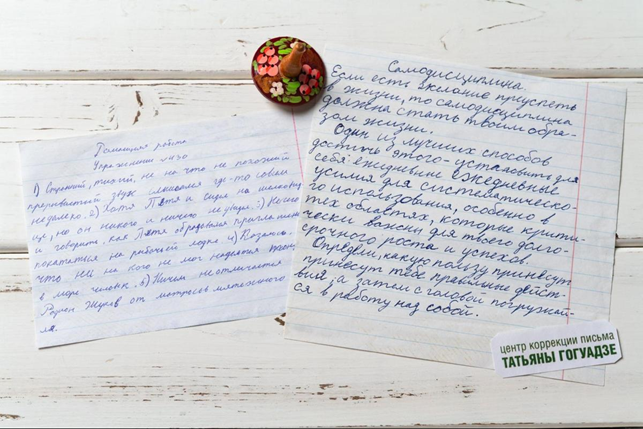 Домашняя работа
Упражнение
1) Странный, не на что не похожий
звук слышался где-то совсем
недалеко. 2) Хотя Петя и сидел на
но он никого и ничего не увидел. 3) Нечего
и говорить, как Петя обрадовался
покататься на рабочей лодке. 4) Казалось,
что на кого не мог надеяться
в мире человек. 5) Ничем не отличается
Жуков от матросов мятежного
ля.
Самодисциплина
Если есть желание преуспеть
в жизни, то самодисциплина
должна стать твоим обра-
зом жизни.
Один из лучших способов
достичь этого - установить для
себя ежедневные ежедневные
усилия для систематическо-
го использования, особенно в
тех областях, которые крити-
чески важны для твоего долго-
срочного роста и успехов.
Определи, какую пользу принесут
принесут тебе правильные дейст-
вия, а затем с головой погружай-
ся в работу над собой.
центр коррекции письма
ТАТЬЯНЫ ГОГУАДЗЕ